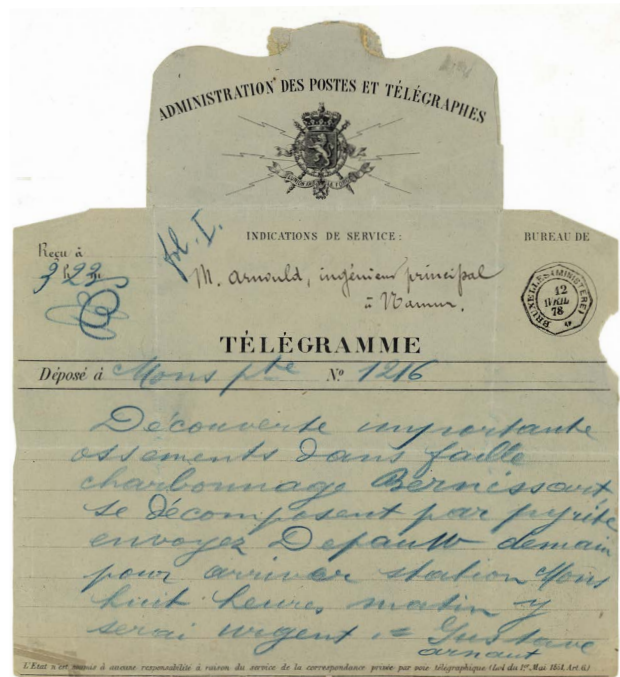 ADMINISTRATION DES POSTES ET TÉLÉGRAPHES
INDICATIONS DE SERVICE :
BUREAU DE
Reçu à
3 h 23 m
M. Arnould, ingénieur principal
à Namur.
BRUXELLES (MINISTÈRE)
12
AVRIL
78
TÉLÉGRAMME
Déposé à Mons pte No 1216
Découverte importante
ossements dans faille
charbonnage Bernissart,
se décomposent par pyrite
envoyez Depauw demain
pour arriver station Mons
huit heures matin y
serai urgent = Gustave
arnaut
L'Etat n'est soumis à aucune responsabilité à raison du service de la correspondance privée par voie télégraphique (Loi du 1er Mai 1851, Art. 6.)